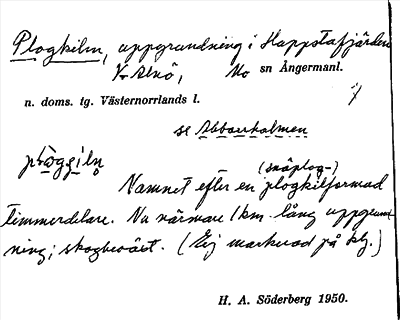 Plogkiln, uppgrundning i Happstafjärden
V Alnö, No sn Ångermanl.
n. doms. tg. Västernorrlands l.
se Abborholmen
(snöplog-)
Namnet efter en plogkilformad
timmerdelare. Nu närmare 1 km. lång uppgrund-
ning; skogbeväxt. (Ej markerad på kg.)
H. A. Söderberg 1950.